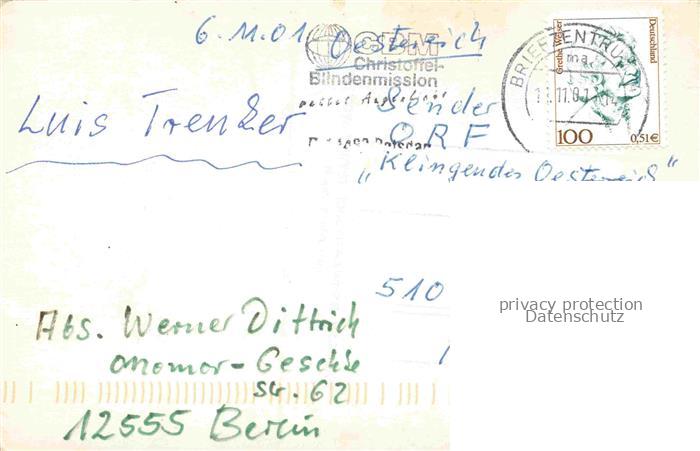 6.11.01
Oesterreich
CBM
Christoffel-
Blindenmission
rettet Augenlicht
Luis Trenker
Sender
ORF
"Klingendes Oesterreich"
BRIEFZENTRUM
11.01
Grethe Weiser
Deutschland
100
0,51€
510
privacy protection
Datenschutz
Abs. Werner Dittrich
Str. 62
12555 Berlin